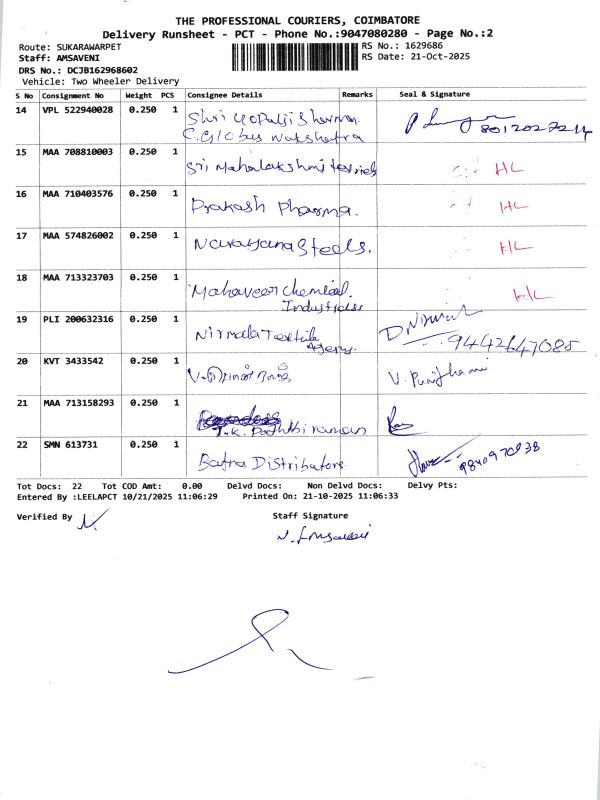 THE PROFESSIONAL COURIERS, COIMBATORE
Delivery Runsheet - PCT - Phone No.:9047080280 - Page No.:2
Route: SUKARAWARPET
RS No.: 1629686
Staff: AMSAVENI
RS Date: 21-Oct-2025
DRS No.: DCJB162968602
Vehicle: Two Wheeler Delivery
S No Consignment No Weight PCS Consignee Details Remarks Seal & Signature
14 VPL 522940028 0.250 1 Shri Gopalji Sharma
C.Globus Nakshatra
15 MAA 708810003 0.250 1 Sri Mahalakshmi textiles HL
16 MAA 710403576 0.250 1 Prakash Pharma. HL
17 MAA 574826002 0.250 1 Narayana Steels. HL
18 MAA 713323703 0.250 1 Mahaveer Chemical HL
Industries
19 PLI 200632316 0.250 1 Nirmala Textile D Nirmal
Agency. 9442647085
20 KVT 3433542 0.250 1
21 MAA 713158293 0.250 1
22 SMN 613731 0.250 1 Batna Distributors 9840970838
Tot Docs: 22 Tot COD Amt: 0.00 Delvd Docs: Non Delvd Docs: Delvy Pts:
Entered By :LEELAPCT 10/21/2025 11:06:29 Printed On: 21-10-2025 11:06:33
Verified By
Staff Signature